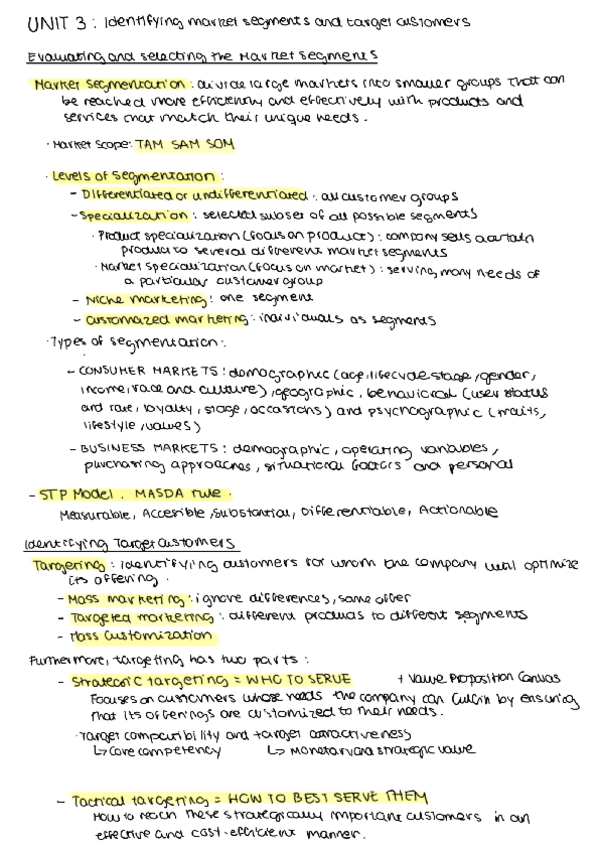 UNIT 3: Identifying market segments and target customers
Evaluating and selecting the Market Segments
Market Segmentation: divide large markets into smaller groups that can
be reached more efficiently and effectively with products and
services that match their unique needs.
· Market Scope: TAM SAM SOM
· Levels of Segmentation:
- Differentiated or undifferentiated: all customer groups
- Specialization: selected subset of all possible segments
· Product specialization (focus on product): company sells a certain
product to several different market segments
· Market specialization (focus on market): serving many needs of
a particular customer group
- Niche marketing: one segment
- Customazed marketing: individuals as segments
· Types of segmentation:
- CONSUMER MARKETS: demographic (age, lifecycle stage, gender,
income, race and culture), geographic, behavioral (user status
and rate, loyalty, stage, occasions) and psychographic (traits,
lifestyle, values)
- BUSINESS MARKETS: demographic, operating variables,
purchasing approaches, situational factors and personal
- STP Model. MASDA rule.
Measurable, Accesible, Substantial, Differentiable, Actionable
Identifying Target Customers
Targering: identifying customers for whom the company will optimize
its offering.
- Mass marketing: ignore differences, same offer
- Targeted marketing: different products to different segments
- Mass Customization
Furthermore, targeting has two parts:
- Strategic targeting = WHO TO SERVE + Value Proposition Canvas
Focuses on customers whose needs the company can fulfill by ensuring
that its offerings are customized to their needs.
· Target compatibility and target attractiveness
↳ Core competency ↳ Monetary and strategic value
- Tactical targeting = HOW TO BEST SERVE THEM
How to reach these strategically important customers in an
effective and cost-efficient manner.